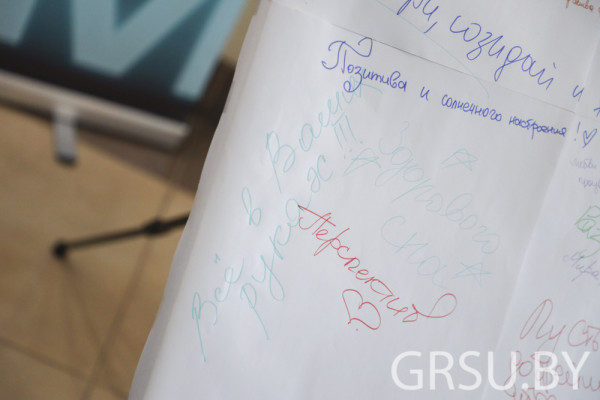 , созидай и
Позитива и солнечного настроения!♡
Всё в Ваших
руках!!!
Здорового
сна
Перспектив
♡
Пусть
GRSU.BY